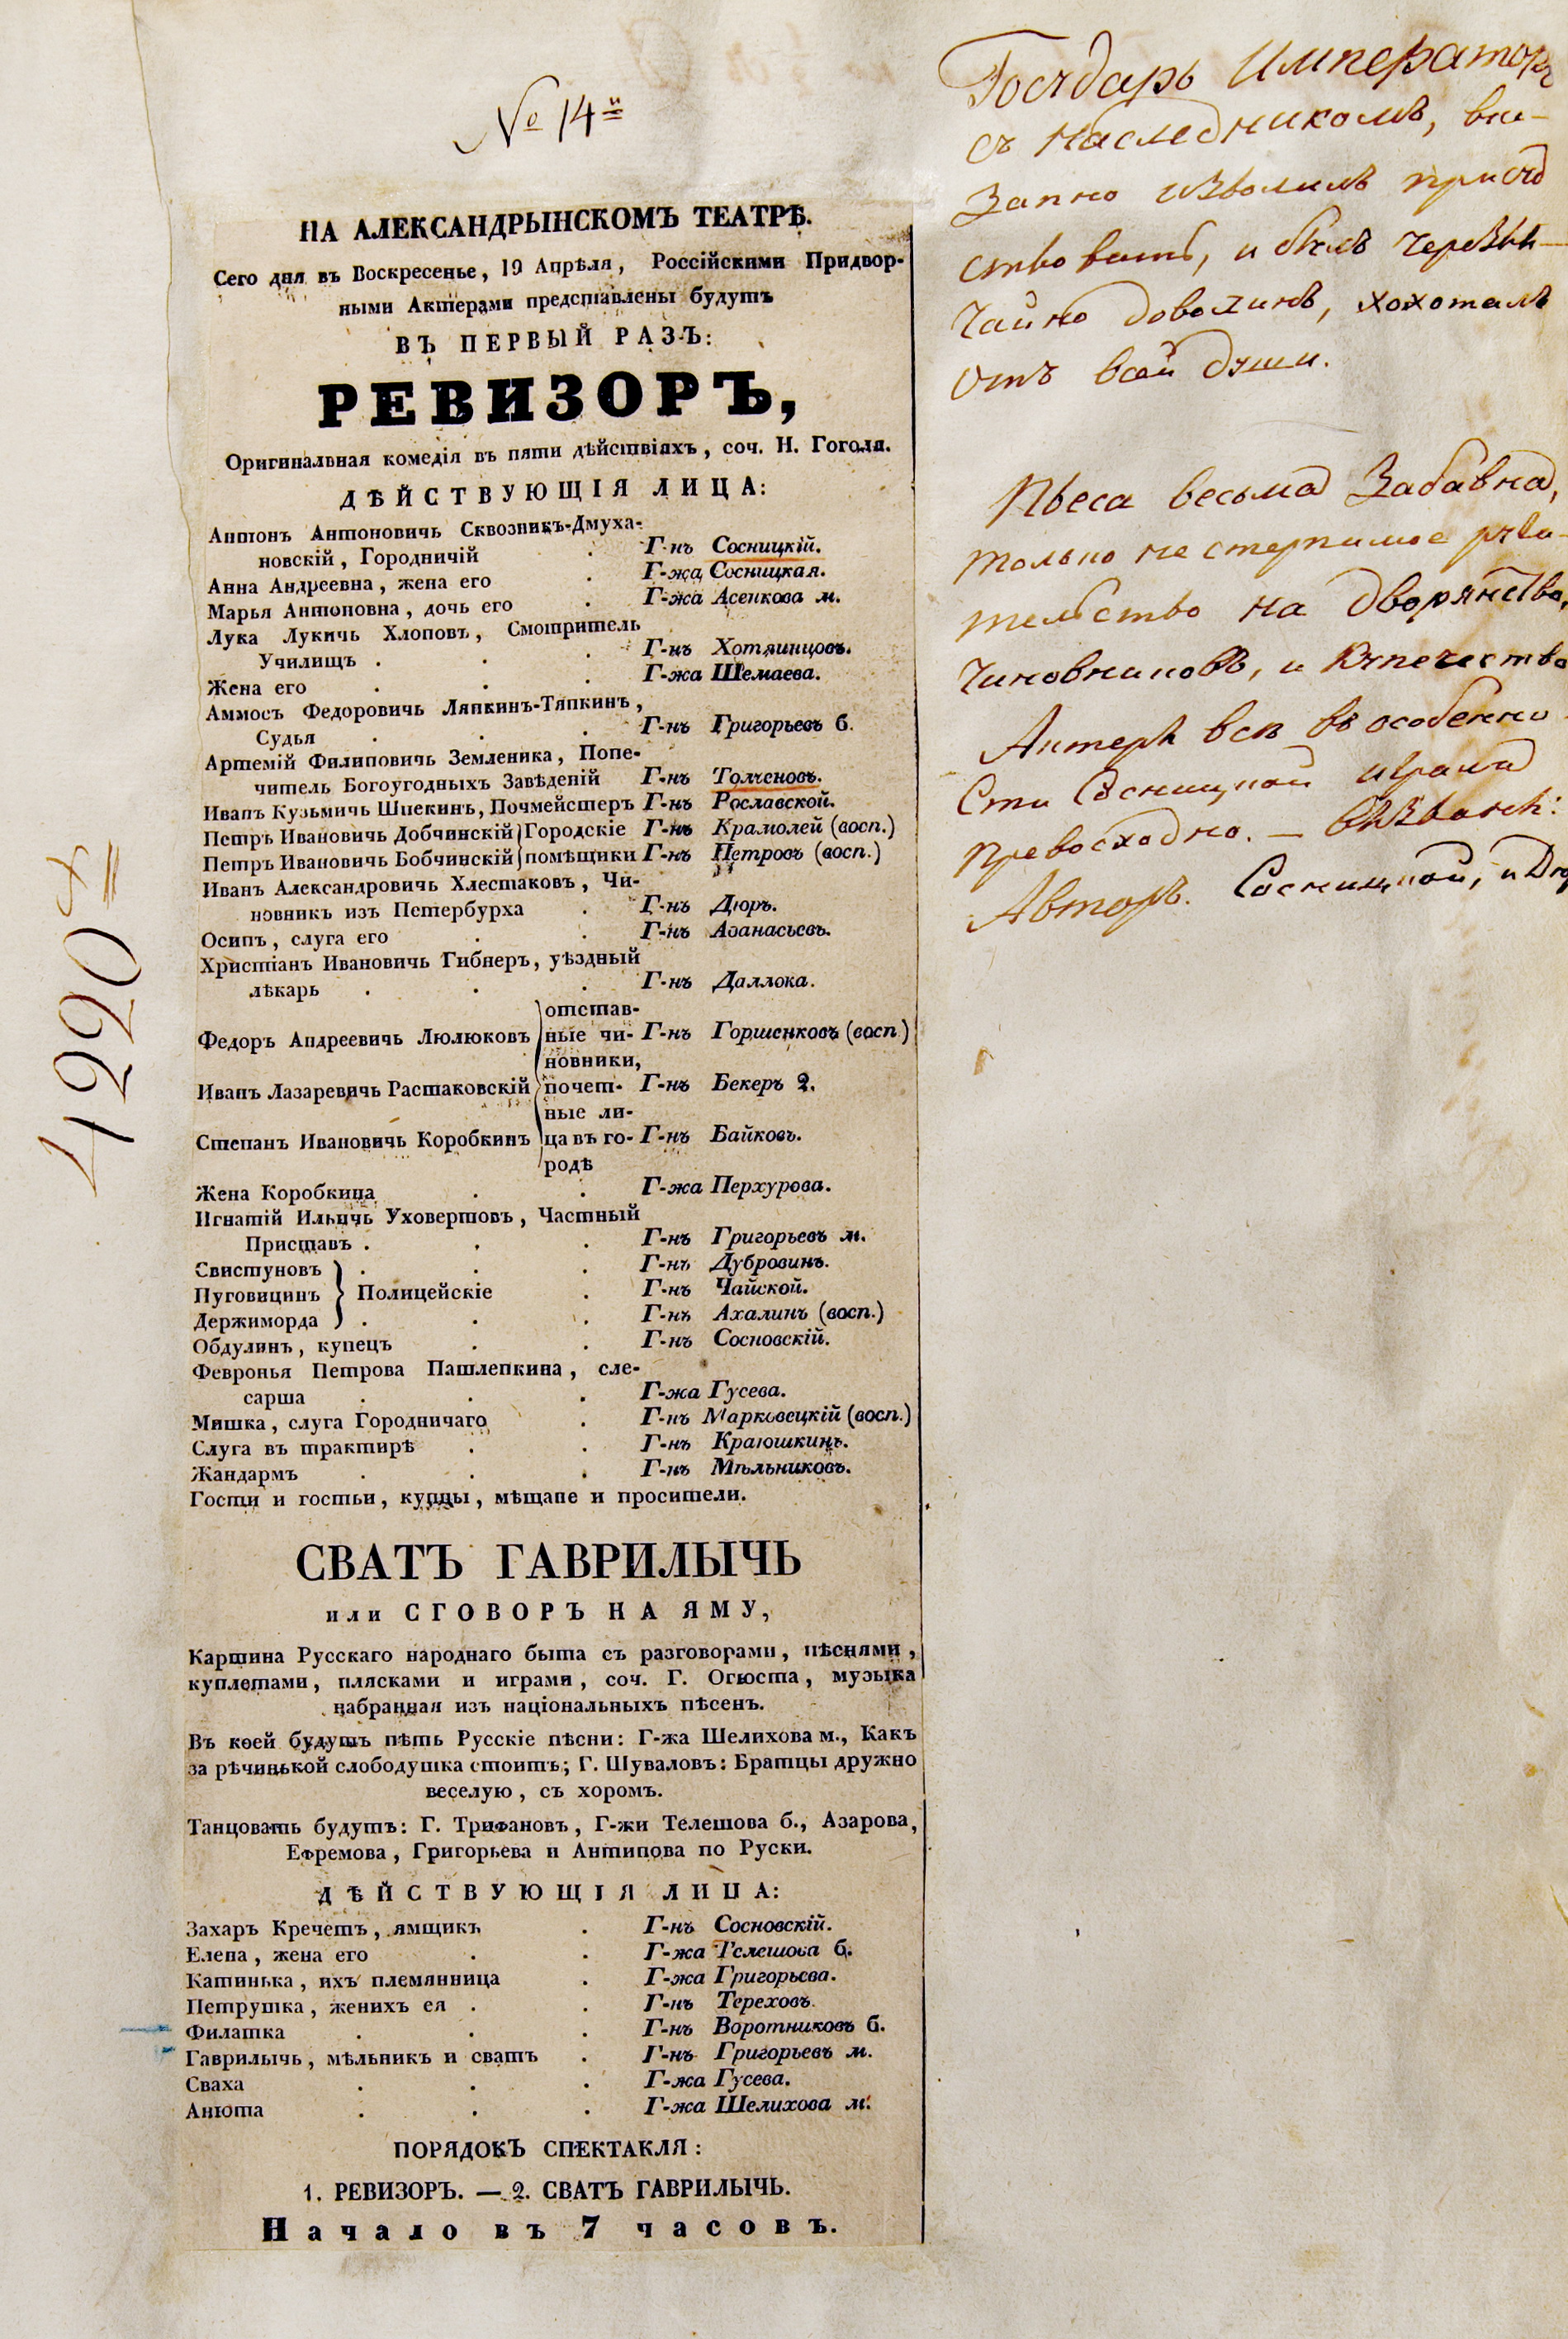 № 14й
НА АЛЕКСАНДРЫНСКОМЪ ТЕАТРѢ.
Сего дня въ Воскресенье, 19 Апрѣля, Россійскими Придвор-
ными Актерами представлены будутъ
ВЪ ПЕРВЫЙ РАЗЪ:
РЕВИЗОРЪ,
Оригинальная комедія въ пяти дѣйствіяхъ, соч. Н. Гоголя.
ДѢЙСТВУЮЩІЯ ЛИЦА:
Антонъ Антоновичь Сквозникъ-Дмуха-
новскій, Городничій . Г-нъ Сосницкій.
Анна Андреевна, жена его . Г-жа Сосницкая.
Марья Антоновна, дочь его . Г-жа Асенкова м.
Лука Лукичь Хлоповъ, Смотритель
Училищъ . . . Г-нъ Хотяинцовъ.
Жена его . . . Г-жа Шемаева.
Аммосъ Федоровичь Ляпкинъ-Тяпкинъ,
Судья . . . Г-нъ Григорьевъ б.
Артемій Филиповичь Земленика, Попе-
читель Богоугодныхъ Завѣденій Г-нъ Толченовъ.
Иванъ Кузьмичь Шпекинъ, Почмейстеръ Г-нъ Рославской.
Петръ Ивановичь Добчинскій } Городскіе Г-нъ Крамолей (восп.)
Петръ Ивановичь Бобчинскій } помѣщики Г-нъ Петровъ (восп.)
Иванъ Александровичь Хлестаковъ, Чи-
новникъ изъ Петербурха . Г-нъ Дюръ.
Осипъ, слуга его . . Г-нъ Аѳанасьевъ.
Христіанъ Ивановичь Гибнеръ, уѣздный
лѣкарь . . . Г-нъ Даллока.
отстав-
Федоръ Андреевичь Люлюковъ ные чи- Г-нъ Горшенковъ (восп.)
новники,
Иванъ Лазаревичь Растаковскій почет- Г-нъ Бекеръ 2.
ные ли-
Степанъ Ивановичь Коробкинъ ца въ го- Г-нъ Байковъ.
родѣ
Жена Коробкина . . Г-жа Перхурова.
Игнатій Ильичь Уховертовъ, Частный
Приставъ . . . Г-нъ Григорьевъ м.
Свистуновъ } . . . Г-нъ Дубровинъ.
Пуговицинъ } Полицейскіе . Г-нъ Чайской.
Держиморда } . . . Г-нъ Ахалинъ (восп.)
Обдулинъ, купецъ . . Г-нъ Сосновскій.
Февронья Петрова Пашлепкина, сле-
сарша . . . Г-жа Гусева.
Мишка, слуга Городничаго . Г-нъ Марковецкій (восп.)
Слуга въ трактирѣ . . Г-нъ Краюшкинъ.
Жандармъ . . . Г-нъ Мѣльниковъ.
Гости и гостьи, купцы, мѣщане и просители.
СВАТЪ ГАВРИЛЫЧЬ
или СГОВОРЪ НА ЯМУ,
Картина Русскаго народнаго быта съ разговорами, пѣснями,
куплетами, плясками и играми, соч. Г. Огюста, музыка
набранная изъ національныхъ пѣсенъ.
Въ коей будутъ пѣть Русскіе пѣсни: Г-жа Шелихова м., Какъ
за рѣчинькой слободушка стоитъ; Г. Шуваловъ: Братцы дружно
веселую, съ хоромъ.
Танцовать будутъ: Г. Трифановъ, Г-жи Телешова б., Азарова,
Ефремова, Григорьева и Антипова по Руски.
ДѢЙСТВУЮЩІЯ ЛИЦА:
Захаръ Кречетъ, ямщикъ . Г-нъ Сосновскій.
Елена, жена его . . Г-жа Телешова б.
Катинька, ихъ племянница . Г-жа Григорьева.
Петрушка, женихъ ея . . Г-нъ Тереховъ.
Филатка . . . Г-нъ Воротниковъ б.
Гаврилычь, мѣльникъ и сватъ . Г-нъ Григорьевъ м.
Сваха . . . Г-жа Гусева.
Анюта . . . Г-жа Шелихова м.
ПОРЯДОКЪ СПЕКТАКЛЯ:
1. РЕВИЗОРЪ. — 2. СВАТЪ ГАВРИЛЫЧЬ.
Начало въ 7 часовъ.
4220
Государь Императоръ
съ Наследникомъ, вне-
запно изволилъ присуд
ствовать, и былъ черезвы-
чайно доволинъ, хохоталъ
отъ всей души.
Пьеса весьма забавна,
только нестерпимое руга-
тельство на дворянство,
чиновниковъ, и купечество
Актеры все въ особенно-
сти Сосницкой играли
превосходно. — Вызваны:
Авторъ. Сосницкой, и Дюр